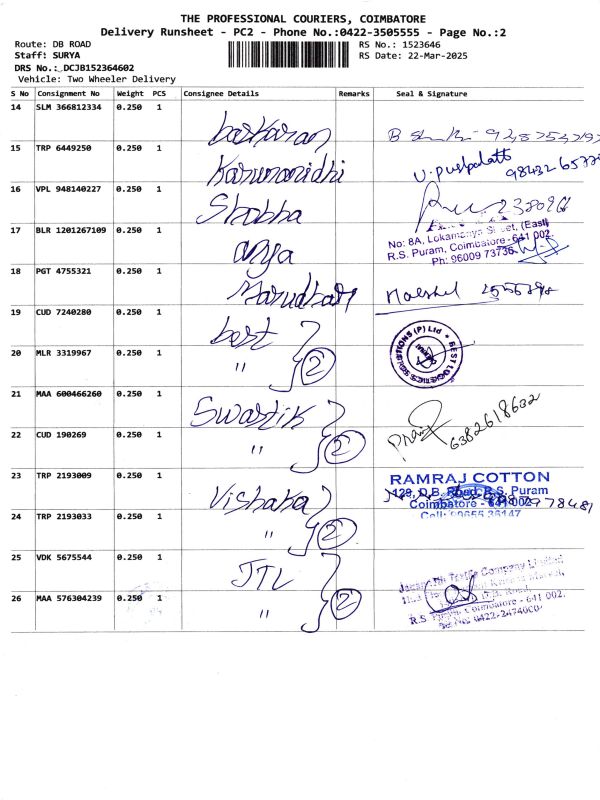 THE PROFESSIONAL COURIERS, COIMBATORE
Delivery Runsheet - PC2 - Phone No.:0422-3505555 - Page No.:2
Route: DB ROAD
RS No.: 1523646
Staff: SURYA
RS Date: 22-Mar-2025
DRS No.: DCJB152364602
Vehicle: Two Wheeler Delivery
S No Consignment No Weight PCS Consignee Details Remarks Seal & Signature
14 SLM 366812334 0.250 1 baskaran
15 TRP 6449250 0.250 1 Karunanidhi U. Pushpalatt
16 VPL 948140227 0.250 1 Shobha
17 BLR 1201267109 0.250 1 arya
No: 8A, Lokamanya Street, (East)
R.S. Puram, Coimbatore - 641 002.
Ph: 96009 73736
18 PGT 4755321 0.250 1 Marudham
19 CUD 7240280 0.250 1 best
BEST LOGISTICS SOLUTIONS (P) Ltd
20 MLR 3319967 0.250 1 " 2
21 MAA 600466260 0.250 1 Swastik
6382618632
22 CUD 190269 0.250 1 " 2
23 TRP 2193009 0.250 1 Vishaka
RAMRAJ COTTON
129, D.B. Road, R.S. Puram
Coimbatore - 641 002
Cell: 90655 36147
24 TRP 2193033 0.250 1 " 2
25 VDK 5675544 0.250 1 JTL
26 MAA 576304239 0.250 1 " 2
D.B. Road,
R.S. Puram, Coimbatore - 641 002.